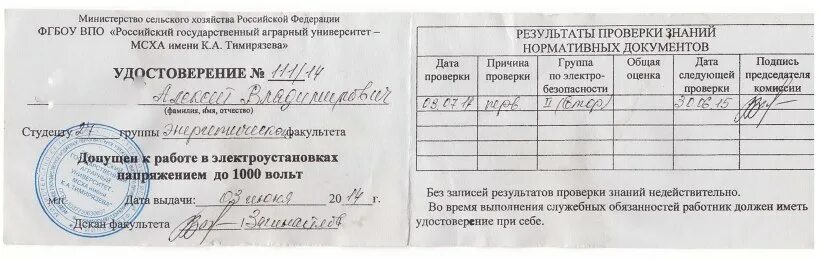 Министерство сельского хозяйства Российской Федерации
ФГБОУ ВПО «Российский государственный аграрный университет –
МСХА имени К.А. Тимирязева»
УДОСТОВЕРЕНИЕ № 111/14
Алексей Владимирович
(фамилия, имя, отчество)
Студенту 27 группы Энергетического факультета
Допущен к работе в электроустановках
напряжением до 1000 вольт
м.п. Дата выдачи: 03 июля 2014 г.
Декан факультета
РЕЗУЛЬТАТЫ ПРОВЕРКИ ЗНАНИЙ
НОРМАТИВНЫХ ДОКУМЕНТОВ
Дата проверки
Причина проверки
Группа по электро-безопасности
Общая оценка
Дата следующей проверки
Подпись председателя комиссии
03.07.14 перв. II 30.06.15
Без записей результатов проверки знаний недействительно.
Во время выполнения служебных обязанностей работник должен иметь
удостоверение при себе.